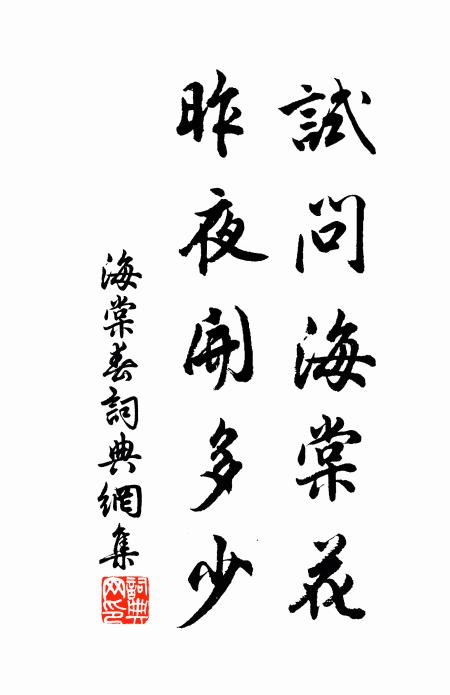 試問海棠花
昨夜開多少
海棠春詞典網集
詞典
网印